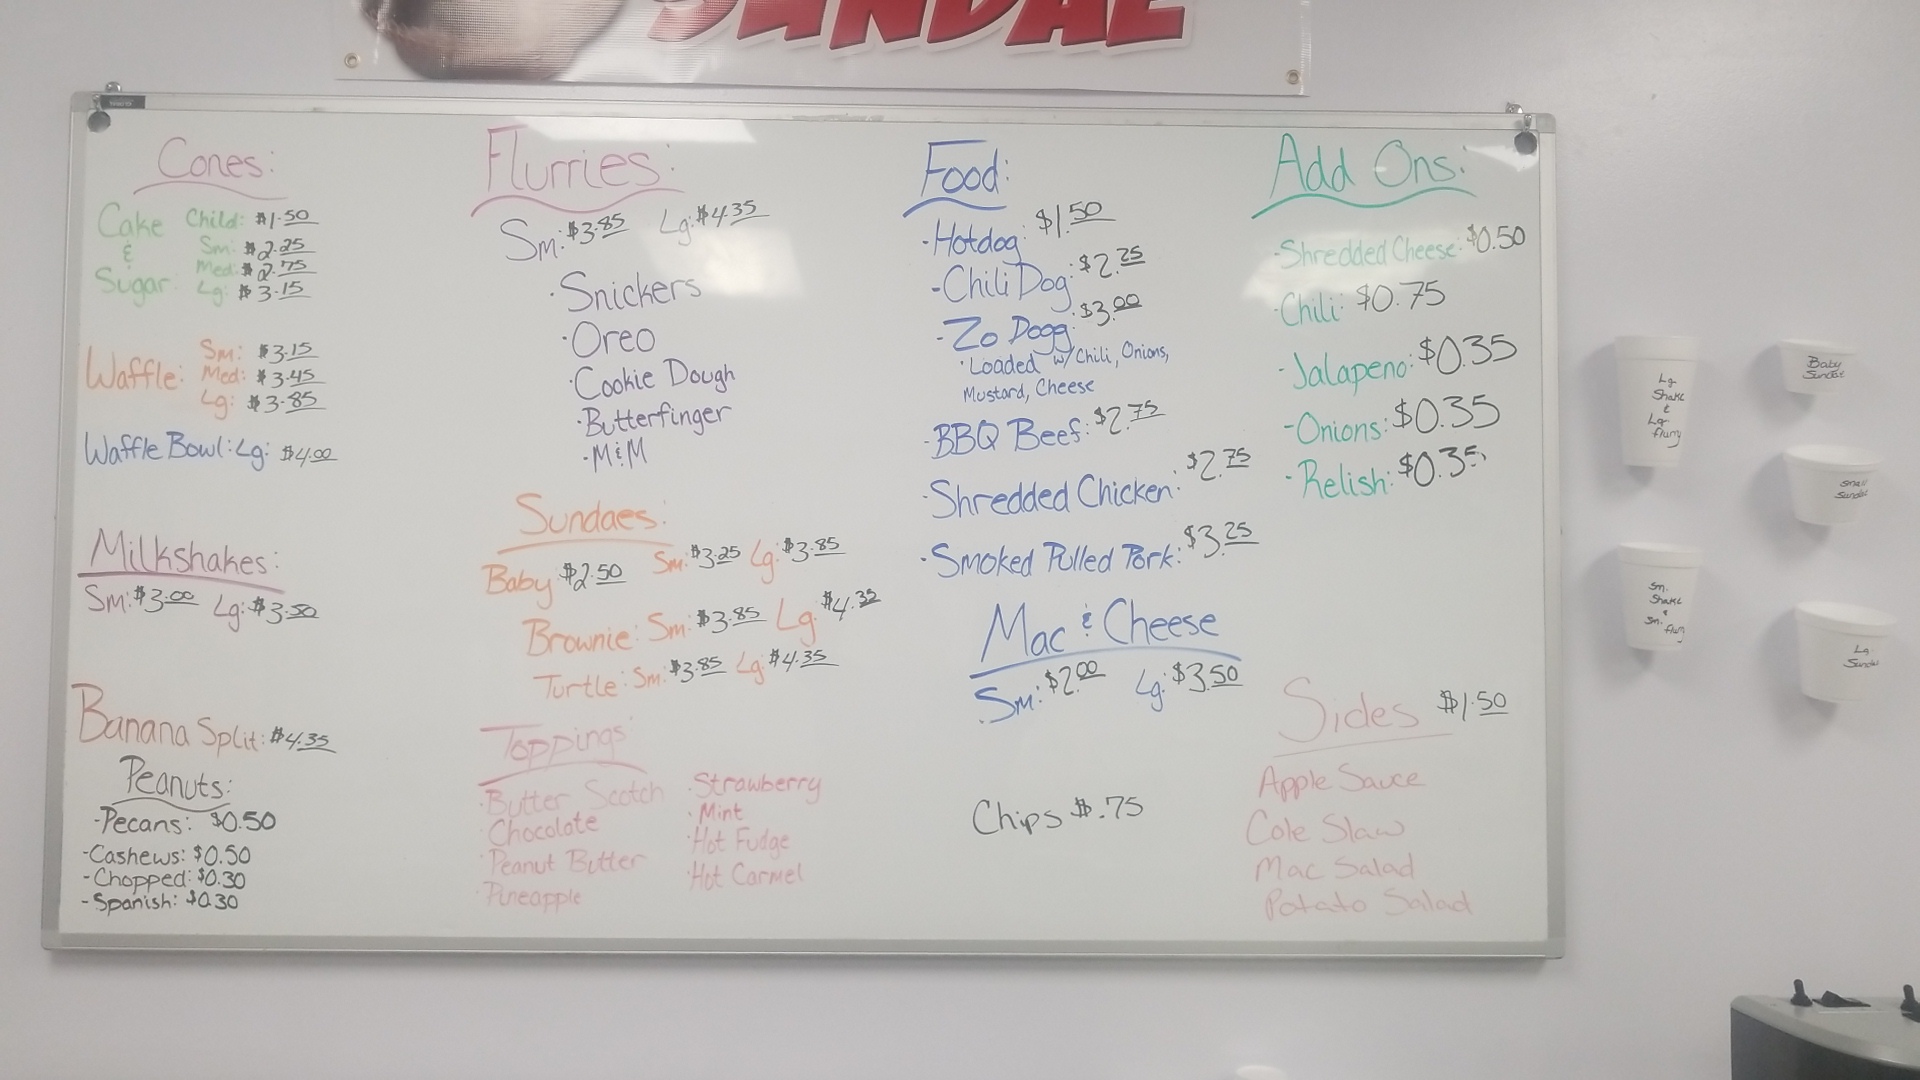 SUNDAE
Cones:
Cake & Sugar:
Child: $1.50
Sm: $2.25
Med: $2.75
Lg: $3.15
Waffle:
Sm: $3.15
Med: $3.45
Lg: $3.85
Waffle Bowl: Lg: $4.00
Milkshakes:
Sm: $3.00 Lg: $3.50
Banana Split: $4.35
Peanuts:
-Pecans: $0.50
-Cashews: $0.50
-Chopped: $0.30
-Spanish: $0.30
Flurries:
Sm: $3.85 Lg: $4.35
·Snickers
·Oreo
·Cookie Dough
·Butterfinger
·M&M
Sundaes:
Baby $2.50 Sm: $3.25 Lg: $3.85
Brownie: Sm: $3.85 Lg: $4.35
Turtle: Sm: $3.85 Lg: $4.35
Toppings
·Butter Scotch
·Chocolate
·Peanut Butter
·Pineapple
·Strawberry
·Mint
·Hot Fudge
·Hot Carmel
Food:
-Hotdog: $1.50
-Chili Dog: $2.25
-Zo Dogg: $3.00
·Loaded w/ Chili, Onions,
Mustard, Cheese
-BBQ Beef: $2.75
-Shredded Chicken: $2.75
·Smoked Pulled Pork: $3.25
Mac & Cheese
Sm: $2.00 Lg: $3.50
Chips $.75
Add Ons:
-Shredded Cheese: $0.50
-Chili: $0.75
-Jalapeno: $0.35
-Onions: $0.35
-Relish: $0.35
Sides $1.50
Apple Sauce
Cole Slaw
Mac Salad
Potato Salad
Lg
Shake
&
Lg
flurry
Baby
Sundae
Small
Sundae
Sm.
Shake
&
Sm. flurry
Lg
Sundae